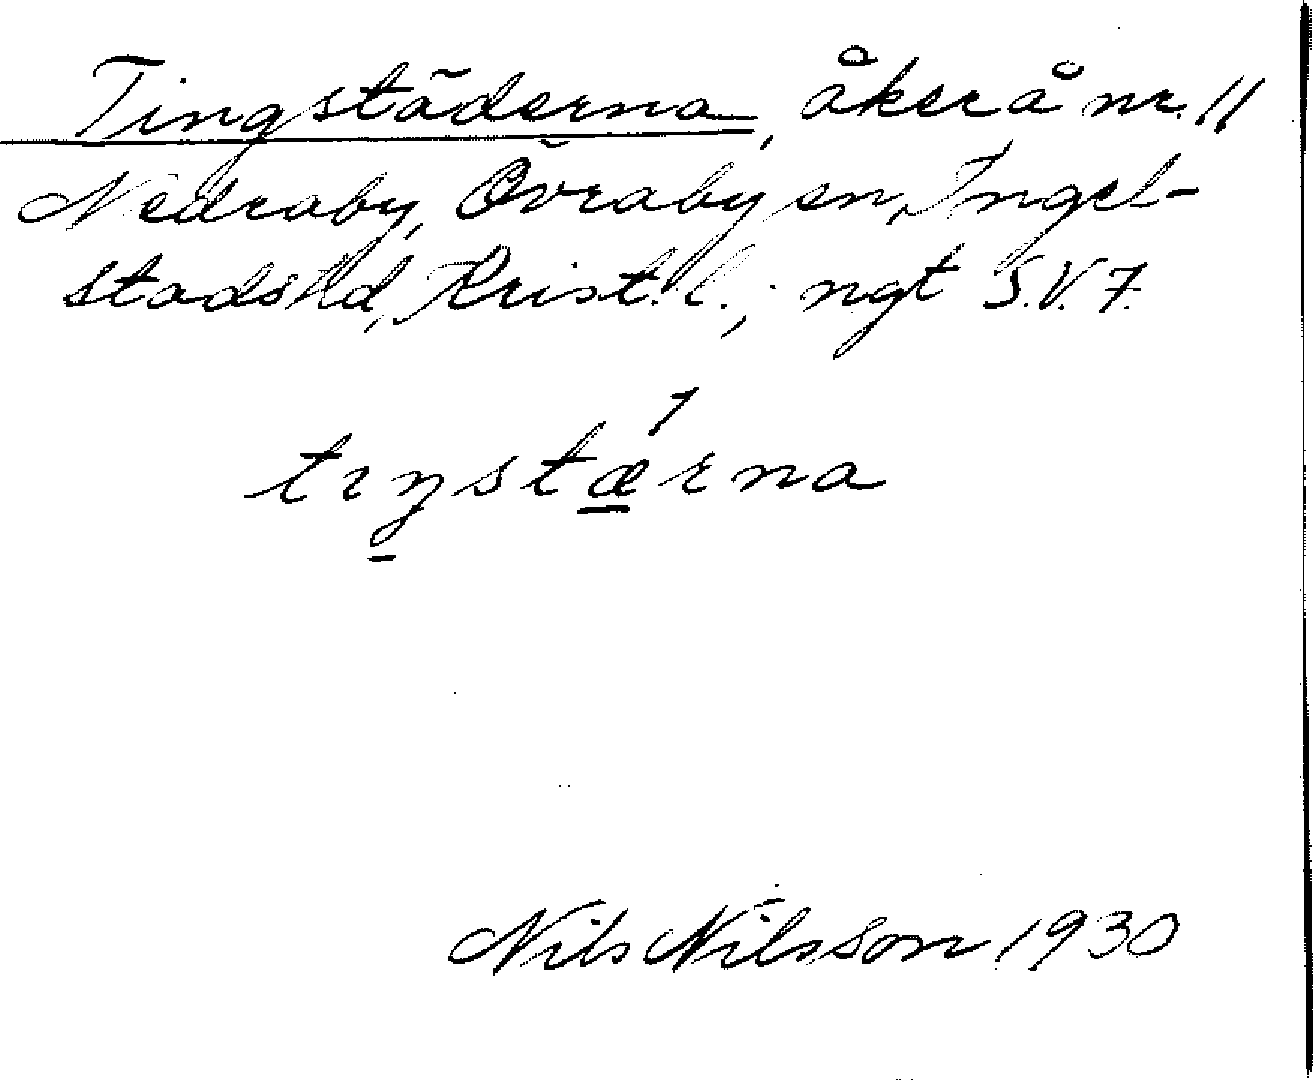 Tingstäderna, åker å nr. 11
Nedraby, Övraby sn, Ingel-
stads hd, Krist. l.; ngt S.V. 7.
tıŋstærna
Nils Nilsson 1930